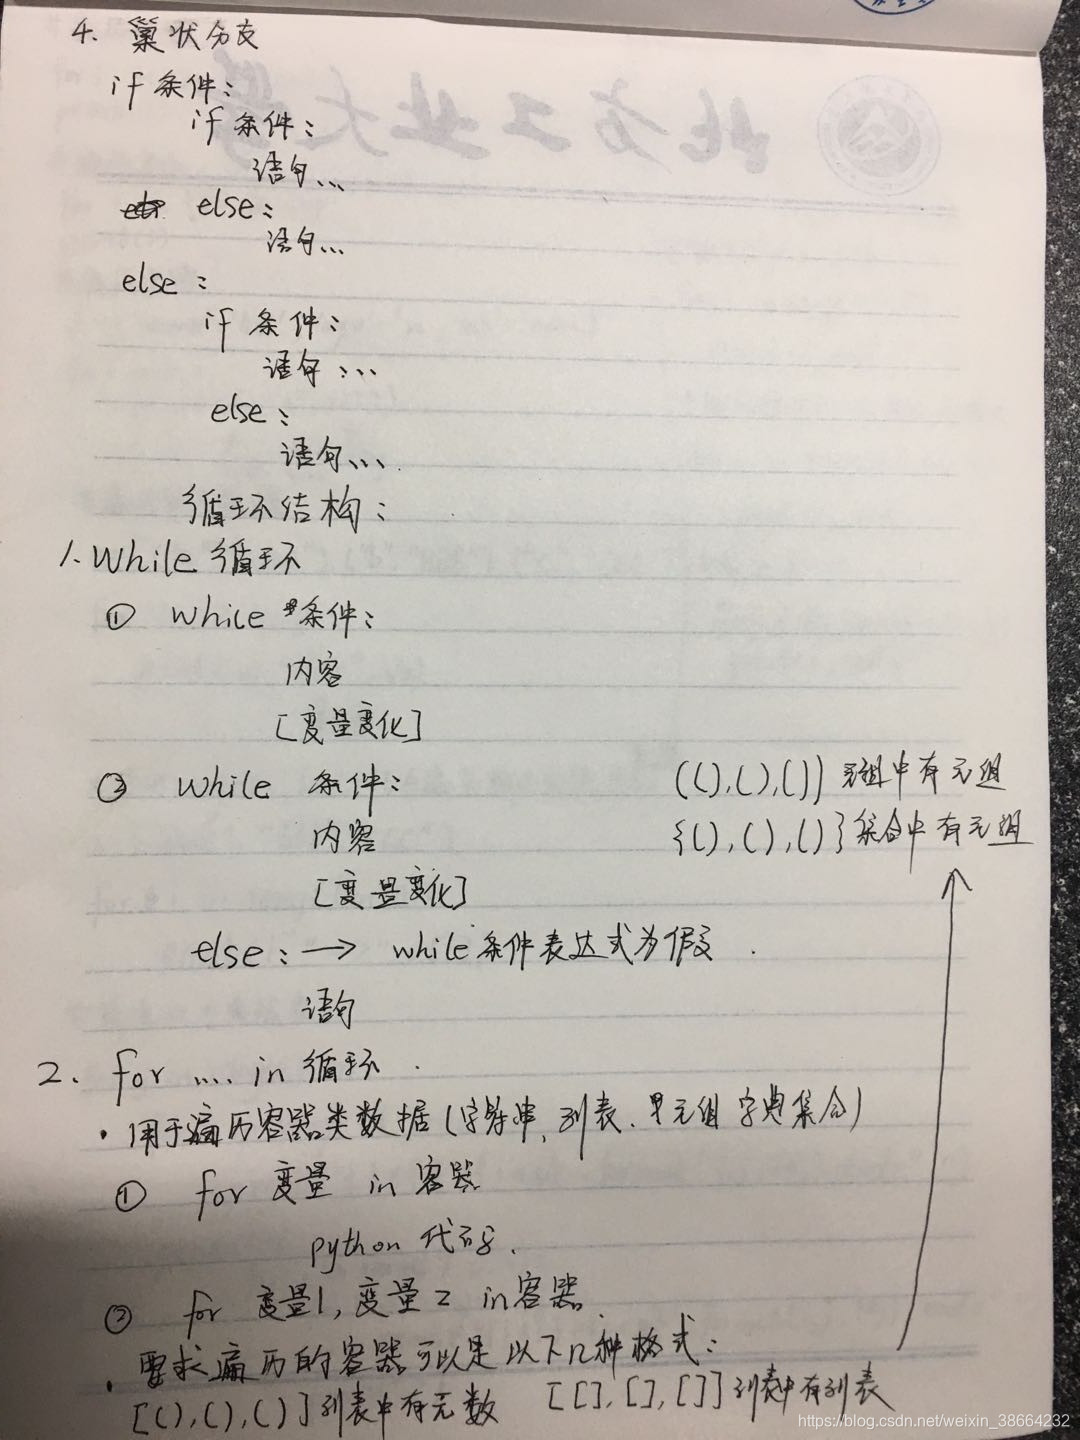 4. 巢状分支
if 条件:
if 条件:
语句...
else:
语句...
else:
if 条件:
语句:...
else:
语句...
循环结构:
1. While 循环
① While 条件:
内容
[变量变化]
② While 条件:
内容
[变量变化]
else: → while 条件表达式为假
语句
2. for .... in 循环.
· 用于遍历容器类数据(字符串、列表、元组 字典集合)
① for 变量 in 容器
python 代码.
② for 变量1, 变量2 in 容器
· 要求遍历的容器可以是以下几种格式:
[(),(),()] 列表中有元数 [[],[],[]] 列表中有列表
((),(),()) 元组中有元组
{(),(),()} 集合中有元组
北方工业大学
https://blog.csdn.net/weixin_38664232